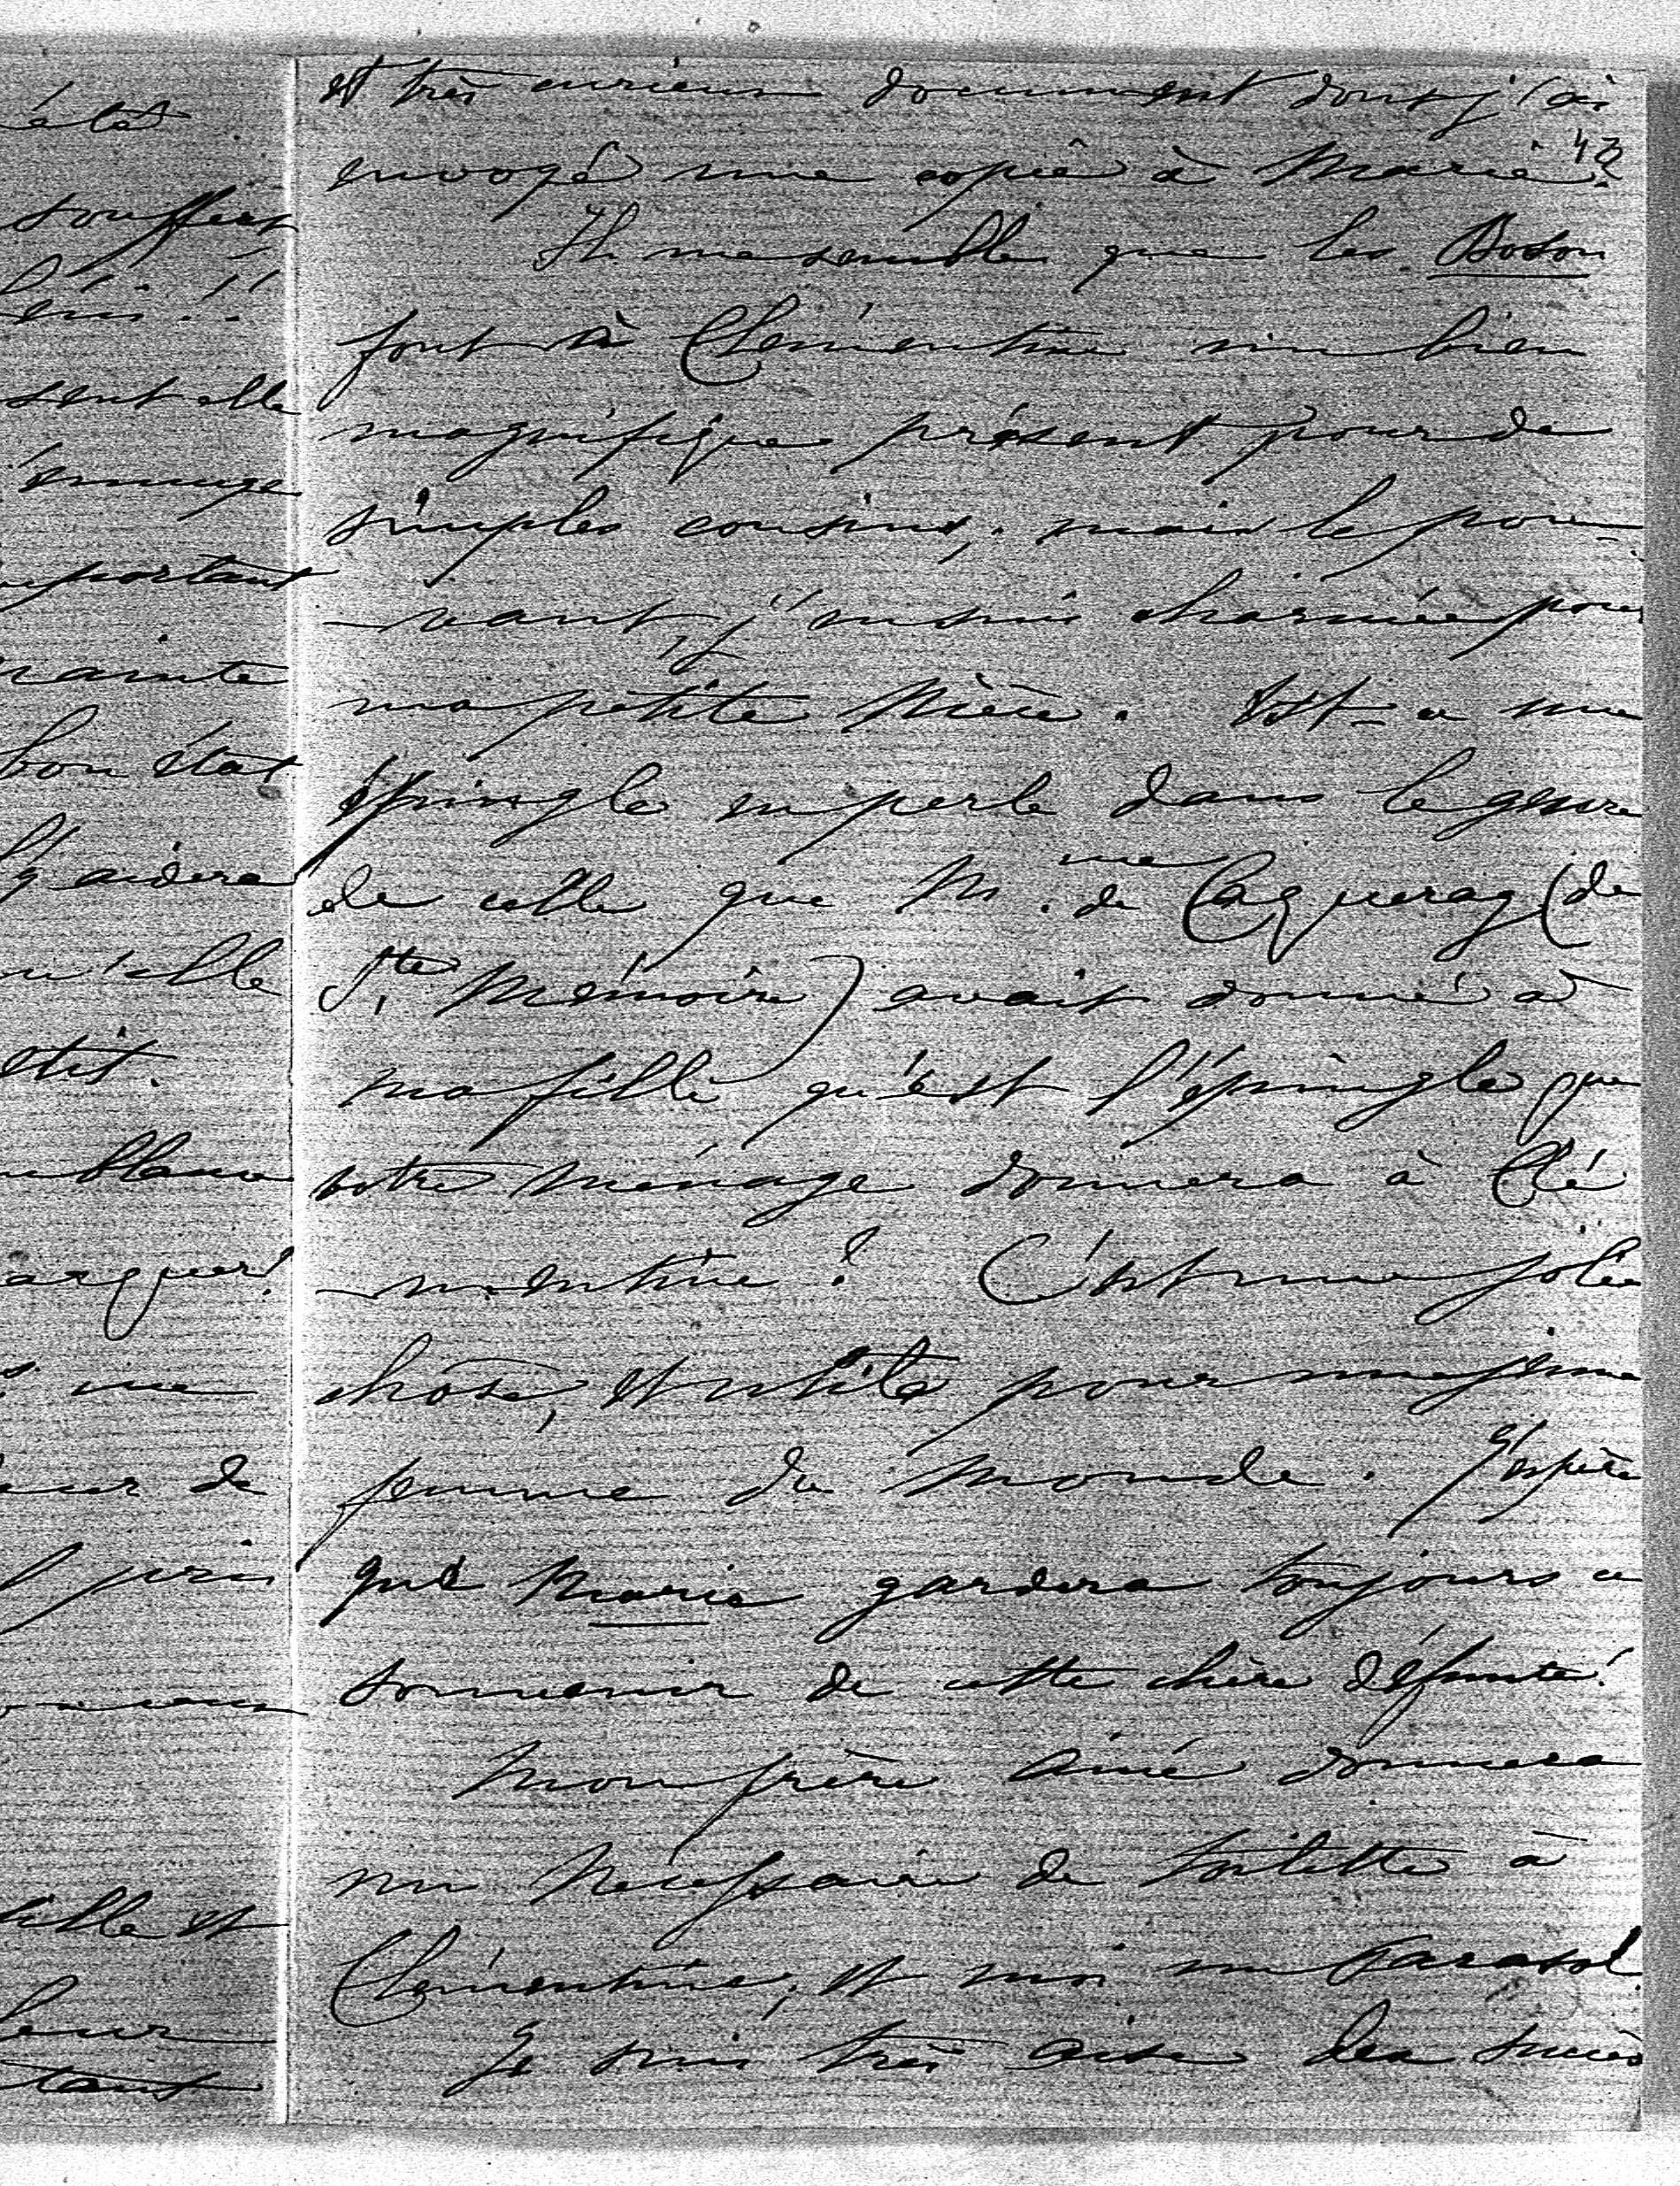 état
souffert
sent elle
s'ennuye
important
crainte
bon état
l'aidera
qu'elle
une
de
pris
fille et
leur
tant
et très curieux document dont j'ai
43
envoyé une copie à Marie.
Il me semble que les Boson
font à Clémentine un bien
magnifique présent pour de
simples cousins, mais le pou-
-vant j'en suis charmée pour
ma petite Nièce. Est-ce une
épingle en perle dans le genre
de celle que Mme de Caqueray (de
Ste Mémoire) avait donné à
ma fille qu'est l'épingle que
votre ménage donnera à Clé
-mentine ? C'est une jolie
chose, et utile pour une jeune
femme du monde. J'espère
que Marie gardera toujours ce
souvenir de cette chère défunte !
Mon frère Aimé donnera
un Nécessaire de toilette à
Clémentine, et moi un Parasol.
Je suis très aise des succès